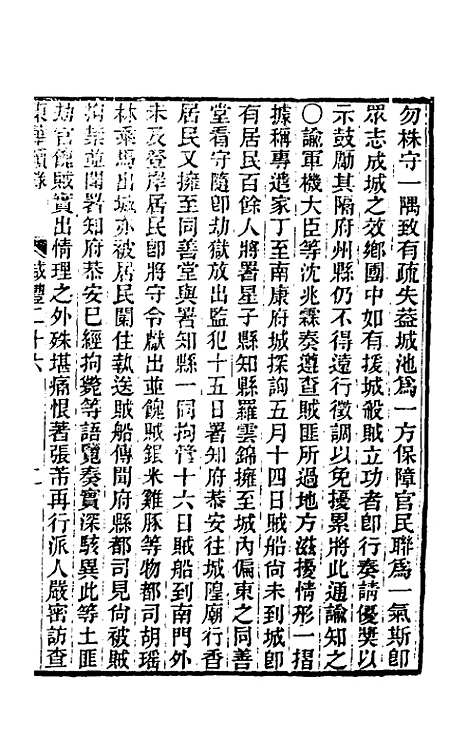 勿株守一隅致有疏失蓋城池爲一方保障官民聯爲一氣斯卽
眾志成城之效鄉團中如有援城殺賊立功者卽行奏請優獎以
示鼓勵其隔府州縣仍不得遠行徵調以免擾累將此通諭知之
〇諭軍機大臣等沈兆霖奏遵查賊匪所過地方滋擾情形一摺
據稱專遣家丁至南康府城探詢五月十四日賊船尙未到城卽
有居民百餘人將署星子縣知縣羅雲錦擁至城內偏東之同善
堂看守隨卽劫獄放出監犯十五日署知府恭安往城隍廟行香
居民又擁至同善堂與署知縣一同拘管十六日賊船到南門外
未及登岸居民卽將守令獻出並餽賊銀米雞豚等物都司胡瑤
林乘馬出城亦被居民圍住執送賊船傳聞府縣都司見尙被賊
拘禁並聞署知府恭安已經拘斃等語覽奏實深駭異此等土匪
劫官餽賊實出情理之外殊堪痛恨著張芾再行派人嚴密訪查
東華續錄 咸豐二十六